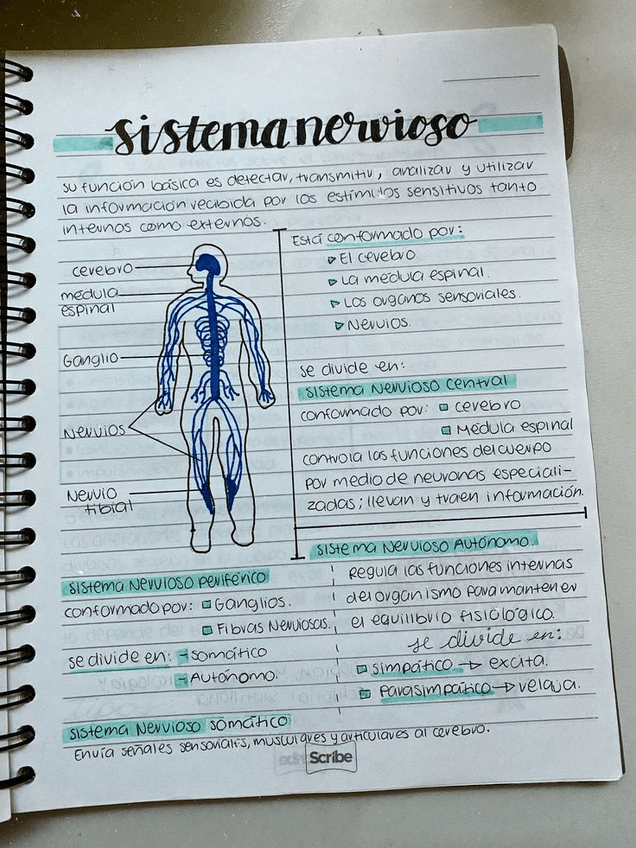 sistema nervioso
su función básica es detectar, transmitir, analizar y utilizar
la información recibida por los estímulos sensitivos tanto
internos como externos.
cerebro
médula
espinal
Ganglio
Nervios
Nervio
tibial
Está conformado por:
El cerebro
La médula espinal.
Los organos sensoriales.
Nervios.
se divide en:
Sistema Nervioso Central
conformado por: cerebro
Médula espinal
controla las funciones del cuerpo
por medio de neuronas especiali-
zadas; llevan y traen información.
Sistema Nervioso Periférico
conformado por: Ganglios.
Fibras Nerviosas.
se divide en: somático
Autónomo.
Sistema Nervioso Autónomo.
Regula las funciones internas
del organismo para mantener
el equilibrio fisiológico.
se divide en:
simpático → excita.
Parasimpático → relaja.
Sistema Nervioso somático
Envía señales sensoriales, musculares y articulares al cerebro.
Scribe